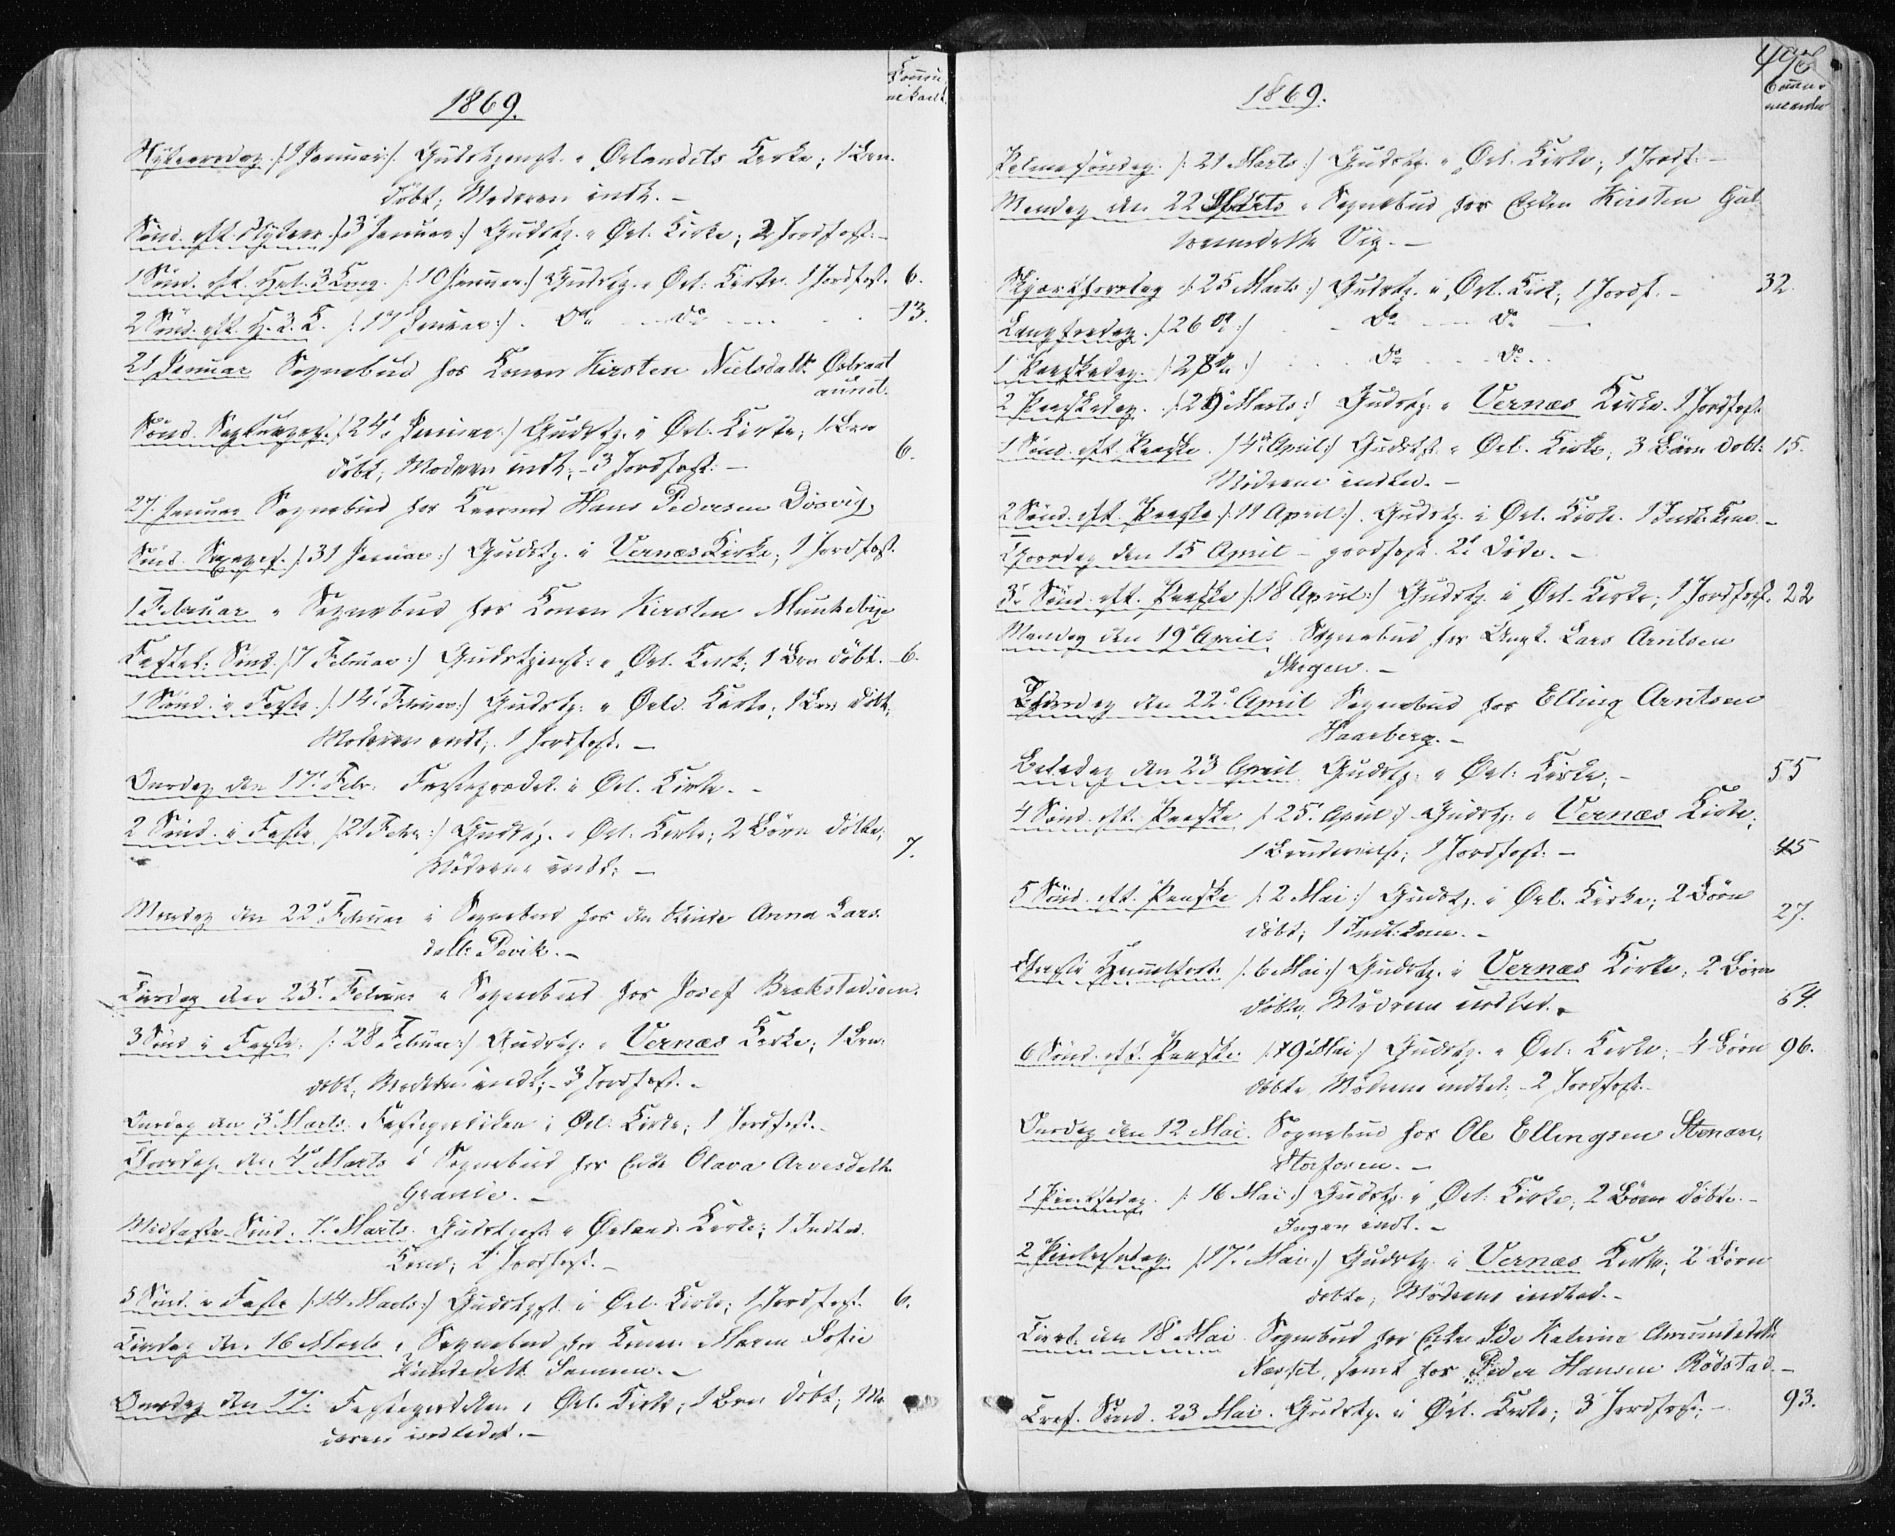 1869.
Commu-
nicant.
Nytaarsdag /: 1 Januar :/ Gudstjenest i Ørlandets Kirke; 1 Barn
döbt; Moderen indl. –
Sönd. eft. Nytaar /: 3 Januar :/ Gudstj. i Örl. Kirke; 2 Jordfest. –
1 Sönd. eft. Hel. 3 Kong. /: 10 Januar :/ Gudstj. i Örl. Kirke. 1 Jordfest. 6.
2 Sönd. eft. H. 3. K. /: 17 Januar :/ . Do – Do 13.
21 Januar Sognebud hos Konen Kirsten Nielsdatt. Østraat
aunet.
Sönd. Septuages. /: 24 Januar :/ Gudstj. i Örl. Kirke; 1 Barn
döbt, Moderen indl; 3 Jordfest. – 6.
27. Januar Sognebud hos Hans Pedersen Dösvig,
Sönd. Sexages. /: 31 Januar :/ Gudstj. i Vernæs Kirke; 1 Jordfest.
1 Februar i Sognebud hos Konen Kirsten Munkebye
Fastel: Sönd. /: 7 Februar :/ Gudstjenst: i Örl. Kirke; 1 Barn döbt. – 6.
1 Sönd. i Faste /: 14 Februar :/ Gudstj. i Örld. Kirke; 1 Barn döbt,
Moderen indl; 1 Jordfest. –
Onsdag den 17 Febr. Fasteprædik. i Örl. Kirke. –
2 Sönd. i Faste /: 21 Febr :/ Gudstj. i Örl. Kirke; 2 Börn döbte;
Mödrene indl; – 7.
Mandag den 22 Februar i Sognebud hos Anna Lars
datt. Revik. –
Tirsdag den 23 Februar i Sognebud hos Josef Brækstadsöen.
3 Sönd i Faste. /: 28 Februar :/ Gudstj: i Vernæs Kirke; 1 Barn
döbt, Moderen indl; – 3 Jordfest. –
Onsdag den 3 Marts. Fasteprædiken i Örl. Kirke; 1 Jordfest. –
Thorsdag den 4 Marts i Sognebud hos Enke Olava Arvesdatt.
Grande. –
Midfaste Sönd. 7 Marts. Gudstjenst i Örland. Kirke; 1 Indled.
Kone; 2 Jordfest. –
5 Sönd. i Faste /: 14 Marts :/ Gudstjst. i Örl. Kirke; 1 Jordfest. 6.
Tirsdag den 16 Marts i Sognebud hos Konen Maren Sofie
–
Onsdag den 17. Fasteprædiken i Örl. Kirke; 1 Barn döbt; Mo
deren indledet. –
1869.
Commu-
nicanter
Palmesöndag. /: 21 Marts :/ Gudstj. i Örl. Kirke; 1 Jordf. –
Mandag den 22 Marts i Sognebud hos Enken Kirsten Gul
brandsdatt. Vig. –
Skjærthorsdag /: 25 Marts :/ Gudstj. i Örl. Kirk; 1 Jordf. – 32.
Langfredag. /: 26 do :/ – Do – Do –
1 Paaskedag. /: 28 do :/ Do – Do –
2 Paaskedag. /: 29 Marts :/ Gudstj. i Vernæs Kirke. 1 Jordfest.
1 Sönd. eft. Paaske. /: 4 April :/ Gudstjst. i Örl. Kirke; 3 Börn döbt: 15.
Mödrene indled. –
2 Sönd. eft. Paaske /: 11 April :/ . Gudstj. i Örl. Kirke. 1 Indl. Kone. –
Thorsdag den 15 April – jordfest. 2 Döde. –
3 Sönd. eft. Paaske /: 18 April :/ Gudstj. i Örl. Kirke; 1 Jordfest. 22
Mandag den 19 April. Sognebud hos Ungk. Lars Arntsen
Skegen. –
Thorsdag den 22 April Sognebud hos Elling Arntsen
Haarberg. –
Bededag den 23 April Gudstj. i Örl. Kirke. – 55
4 Sönd. eft. Paaske /: 25 April :/ Gudstj. i Vernæs Kirke;
1 Brudevielse; 1 Jordfest. – 45
5 Sönd. eft. Paaske /: 2 Mai :/ Gudstj. i Örl. Kirke; 2 Börn
döbt; 1 Indl. Kone. – 27.
Christi Himmelfart. /: 6 Mai :/ Gudstj. i Vernæs Kirke; 2 Börn
döbte, Mödrene indled. – 64.
6 Sönd. eft. Paaske. /: 9 Mai :/ Gudstj. i Örl. Kirke; 4 Börn 96.
döbte Mödrene indled; – 2 Jordfest. –
Onsdag den 12 Mai. Sognebud hos Ole Ellingsen
Storfosen. –
1 Pintsedag. /: 16 Mai :/ Gudstj. i Örl. Kirke; 2 Börn döbte. –
Ingen indl. –
2 Pintsedag. /: 17 Mai :/ Gudstj. i Vernæs Kirke; 2 Börn
döbte; Mödrene indled. –
Tirsd. den 18 Mai Sognebud hos Enke Ida Katrine Amundsdatt.
Næsset, samt hos Peder Hansen Rödstad. –
Tref. Sönd. 23 Mai. Gudstj. i Örl. Kirke; 3 Jordfest; – 93.